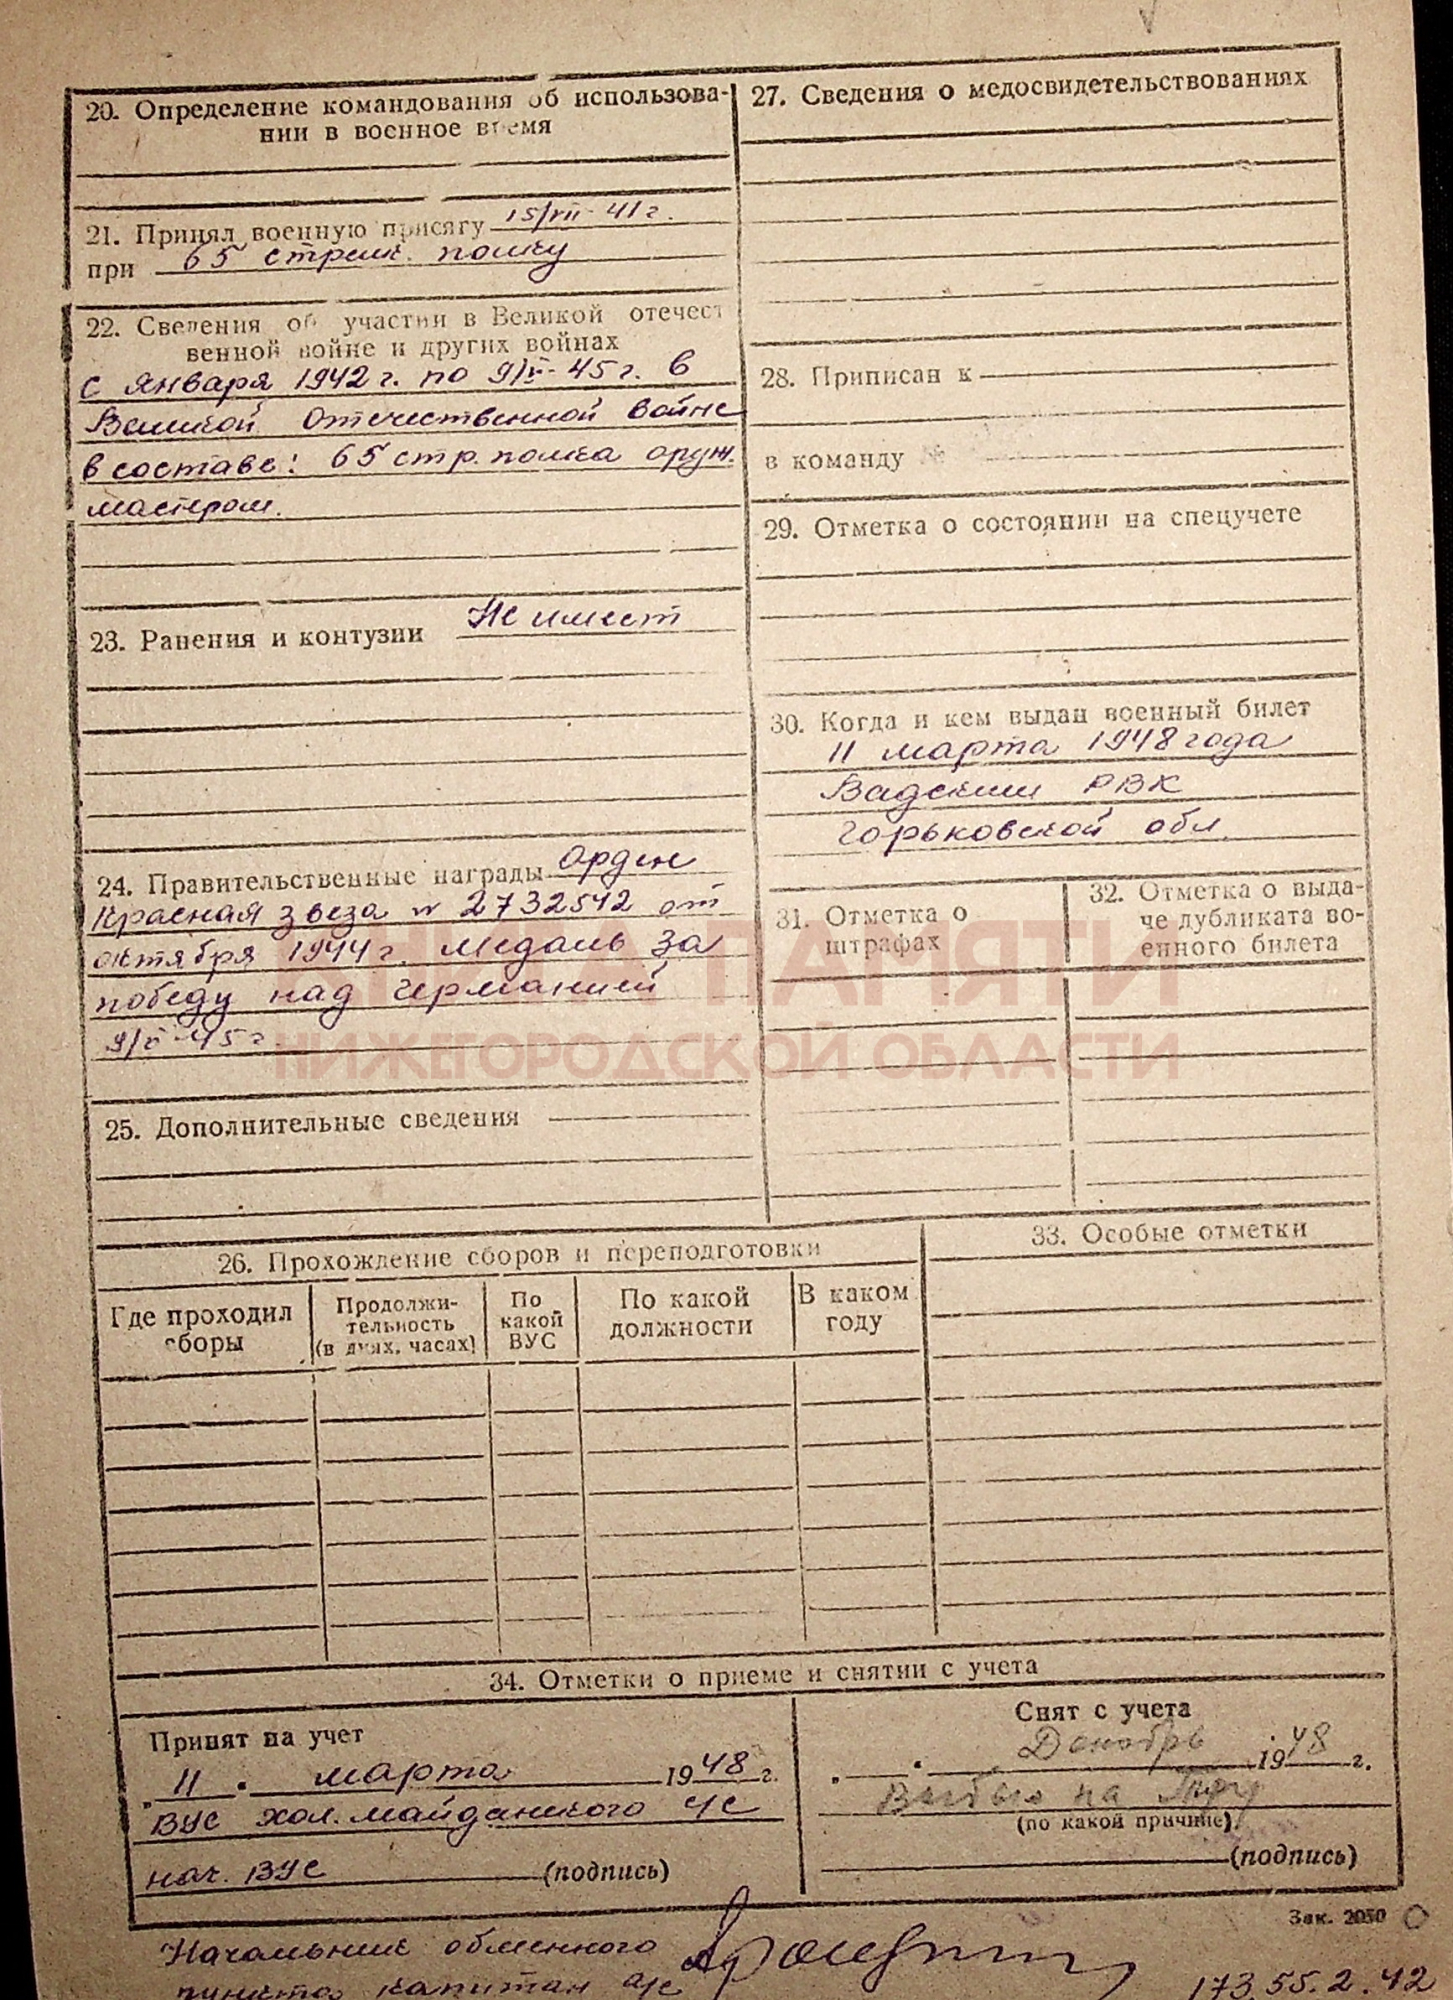 20. Определение командования об использова-
нии в военное время
21. Принял военную присягу 15/VII-41г.
при 65 стрелк. полку
22. Сведения об участии в Великой отечест
венной войне и других войнах
с января 1942 г. по 9/V-45 г. в
Великой Отечественной войне
в составе: 65 стр. полка оруж.
мастером.
23. Ранения и контузии Не имеет
24. Правительственные награды Орден
Красная звеза № 2732542 от
октября 1944 г. Медаль За
победу над Германией
9/V-45 г.
25. Дополнительные сведения
27. Сведения о медосвидетельствованиях
28. Приписан к
в команду №
29. Отметка о состоянии на спецучете
30. Когда и кем выдан военный билет
11 марта 1948 года
Вадским РВК
Горьковской обл.
31. Отметка о
штрафах
32. Отметка о выда-
че дубликата во-
енного билета
КНИГА ПАМЯТИ
НИЖЕГОРОДСКОЙ ОБЛАСТИ
26. Прохождение сборов и переподготовки
Где проходил
сборы
Продолжи-
тельность
(в днях, часах)
По
какой
ВУС
По какой
должности
В каком
году
33. Особые отметки
34. Отметки о приеме и снятии с учета
Принят на учет
11 . марта 1948 г.
ВУС Хол. майданского с/с
нач. ВУС (подпись)
Снят с учета
Декабрь 1948 г.
Выбыл на
(по какой причине)
(подпись)
Зак. 2050
Начальник обменного
пункта капитан а/с
173.55.2.42